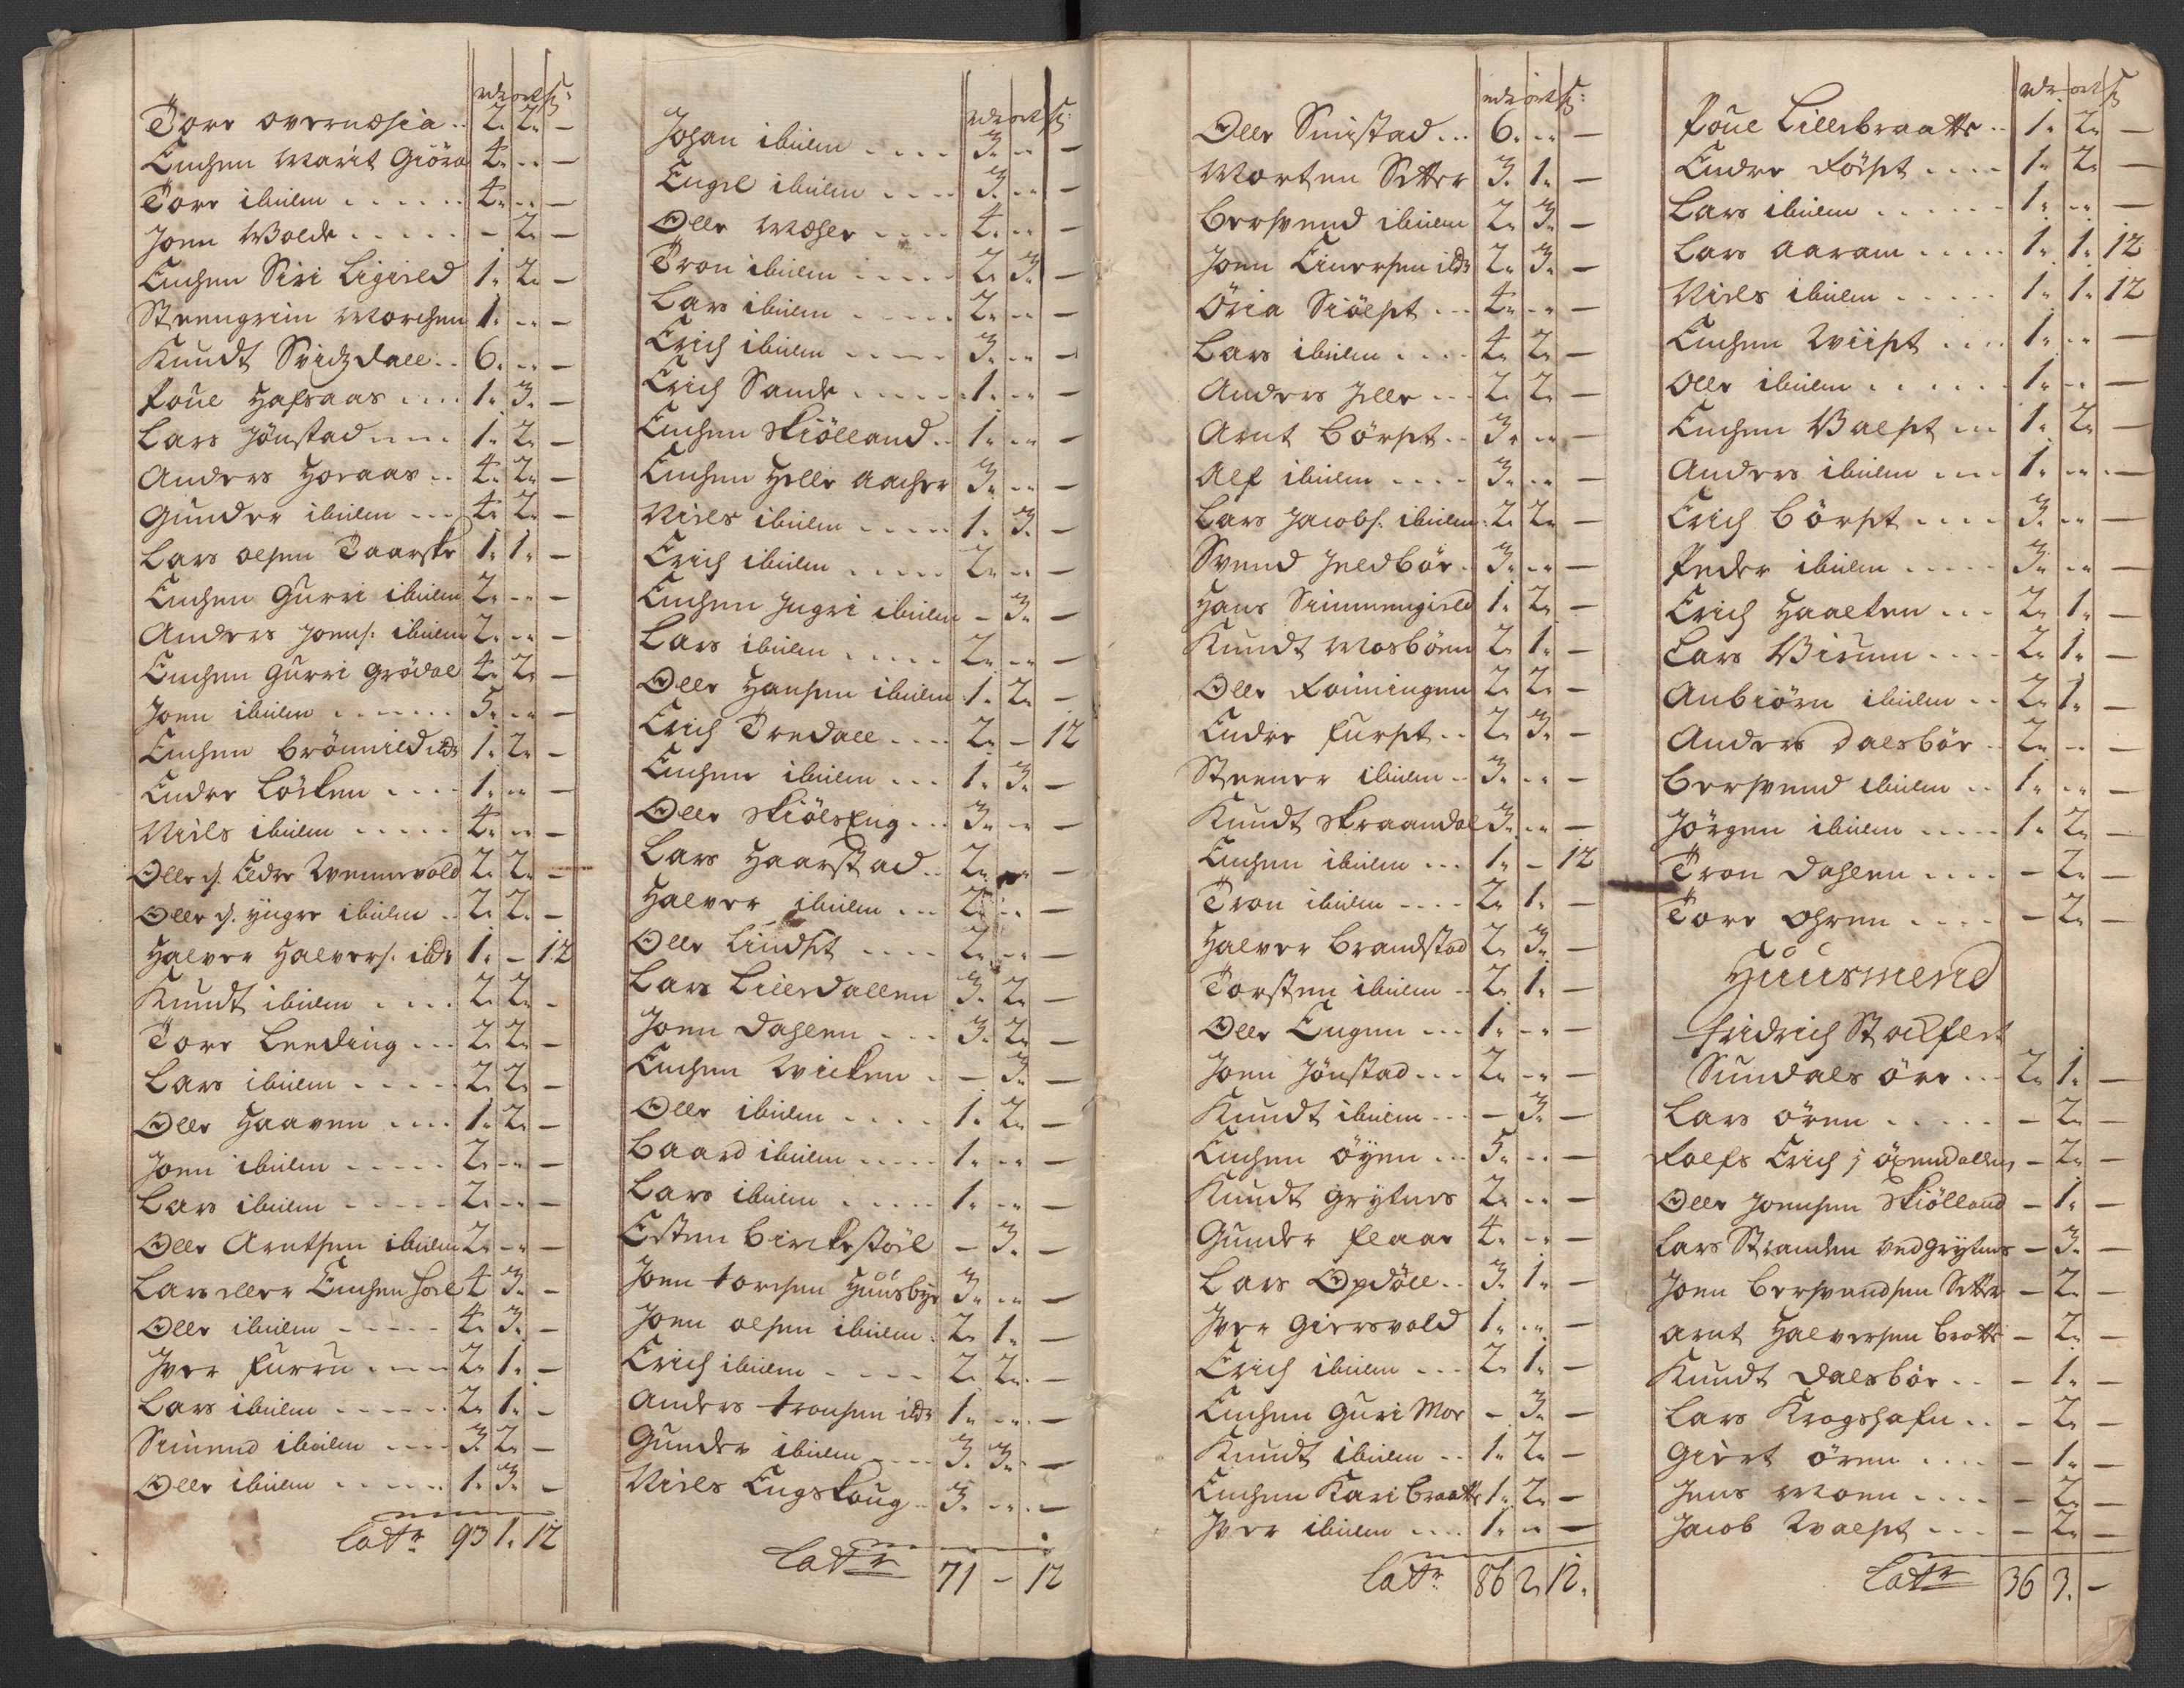 rdr ort ß:
Tore overnæsia .. 2. 2. –
Enchen Marit Giöra 4. .. –
Tore ibidem . . . . . . 4. .. –
Joen Wolde . . . . . – 2. –
Enchen Siri Ligield 1. 2. –
Steengrim Morchen 1. .. –
Knudt Svidzdall . . 6. .. –
Poüe Hafsaas . . . . 1. 3. –
Lars Jönstad . . . . 1. 2. –
Anders Horaas . . 4. 2. –
Gunder ibidem . . . 4. 2. –
Lars olsen Taarske 1. 1. –
Enchen Gurri ibidem 2. .. –
Anders Joens: ibidem 2. .. –
Enchen Gurri Grödal 4. 2. –
Joen ibidem . . . . . . 5. .. –
Enchen Brönnild ibd: 1. 2. –
Endre Löcken . . . . 1. .. –
Niels ibidem . . . . . 4. .. –
Olle d. Eldre Wennevold 2. 2. –
Olle d. yngre ibidem . . 2. 2. –
Halver Halvers: ibd: 1. – 12
Knudt ibidem . . . . 2. 2. –
Tore Leeding . . . 2. 2. –
Lars ibidem . . . . . 2. 2. –
Olle Haaven . . . . 1. 2. –
Joen ibidem . . . . . 2. .. –
Lars ibidem . . . . . 2. .. –
Olle Arntsen ibidem 2. .. –
Lars eller Enchen Hoel 4 3. –
Olle ibidem . . . . . 4. 3. –
Iver Furru . . . . 2. 1. –
Lars ibidem . . . . . . 2. 1. –
Simend ibidem . . . . 3. 2. –
Olle ibidem . . . . . . 1. 3. –
Latr: 93 1. 12
rdr ort ß:
Johan ibidem . . . . . 3. .. –
Engel ibidem . . . . . 3. .. –
Olle Mæhle . . . . 4. .. –
Tron ibidem . . . . . 2. 3. –
Lars ibidem . . . . . 2. .. –
Erich ibidem . . . . . 3. .. –
Erich Sande . . . . . 1. .. –
Enchen Skiölland . . 1. .. –
Enchen Helle Aacher 3. .. –
Niels ibidem . . . . . 1. 3. –
Erich ibidem . . . . . 2. .. –
Enchen Ingri ibidem – 3. –
Lars ibidem . . . . . 2. .. –
Olle Hansen ibidem 1. 2. –
Erich Tredall . . . . 2. – 12
Enchen ibidem . . . 1. 3. –
Olle Skiölseng . . . 3. .. –
Lars Haarstad . . 2. .. –
Halver ibidem . . . 2. .. –
Olle Lindset . . . . 2. .. –
Lars Lilledallen 3. 2. –
Joen Dahlen . . . 3. 2. –
Enchen Wicken . – 3. –
Olle ibidem . . . . 1. 2. –
Baard ibidem . . . . . 1. .. –
Lars ibidem . . . . . 1. .. –
Esten Birkestöel – 3. –
Joen Torchsen Huusbye 3. .. –
Joen olsen ibidem . 2. 1. –
Erich ibidem . . . . . 2. 2. –
Anders Tronsen ibd: 1. .. –
Gunder ibidem . . . . 3. 3. –
Niels Engskoug . . 3. .. –
Latr 71 – 12
rdr ort ß:
Olle Smistad . . . 6. .. –
Morten Setter 3. 1. –
Bersvend ibidem 2. 3. –
Joen Einersen ibd: 2. 3. –
Öria Siölset . . . 4. .. –
Lars ibidem . . . . 4. 2. –
Anders Jelle . . . 2. 2. –
Arnt Börset . . 3. .. –
Alf ibidem . . . . 3. .. –
Lars Jacobs: ibidem 2. 2. –
Svend Jeldbör . 3. .. –
Hans Simmengield 1. 2. –
Knudt Mosböen 2. 1. –
Olle Romingen 2. 2. –
Endre Furset . . 2. 3. –
Steener ibidem . . 3. .. –
Knudt Skraandal 3. .. –
Enchen ibidem . . . 1. – 12
Tron ibidem . . . . 2. 1. –
Halver Brandstad 2. 3. –
Torsten ibidem . . 2. 1. –
Olle Engen . . . 1. .. –
Joen Jönstad . . . 2. .. –
Knudt ibidem . . . – 3. –
Enchen Öyen . . . 5. .. –
Knudt Grytnes 2. .. –
Gunder Flaae 4. .. –
Lars Opdöll . . 3. 1. –
Iver Giersvold 1. .. –
Erich ibidem . . . 2. 1. –
Enchen Guri Moe – 3. –
Knudt ibidem . . . 1. 2. –
Enchen Kari Braatte 1. 2. –
Iver ibidem . . . . 1. .. –
Latr: 86 2. 12.
rdr ort ß
Poüe Lillebraatte . . 1. 2. –
Endre Röiset . . . . 1. 2. –
Lars ibidem . . . . . . 1. .. –
Lars Aaram . . . . . 1. 1. 12
Niels ibidem . . . . . 1. 1. 12
Enchen Wiiset . . . . 1. .. –
Olle ibidem . . . . . . 1. .. –
Enchen Walset . . . 1. 2. –
Anders ibidem . . . . 1. .. –
Erich Börset . . . . 3. .. –
Peder ibidem . . . . . 3. .. –
Erich Haalken . . . 2. 1. –
Lars Virum . . . . 2. 1. –
Anbiörn ibidem . . 2. 1. –
Anders Dalsbör . . 2. .. –
Bersvend ibidem . . 1. .. –
Jörgen ibidem . . . . 1. 2. –
Tron Dahlen . . . . – 2. –
Tore Ohren . . . . – 2. –
Huusmend
Fridrich Stockflet
Sundals öre . . . 2. 1. –
Lars ören . . . . . – 2. –
Rolfs Erich j öxendallen – 2. –
Olle Joensen Skiölland – 1. –
Lars Stranden ved Grytnes – 3. –
Joen Bersvendsen Sette – 2. –
Arnt Halversen Brotte – 2. –
Knudt Dalsbör . . – 1. –
Lars Krogshafn . . – 2. –
Giert ören . . . . – 1. –
Jens Moen . . . . – 2. –
Jacob Walset . . . – 2. –
Latr 36 3. –